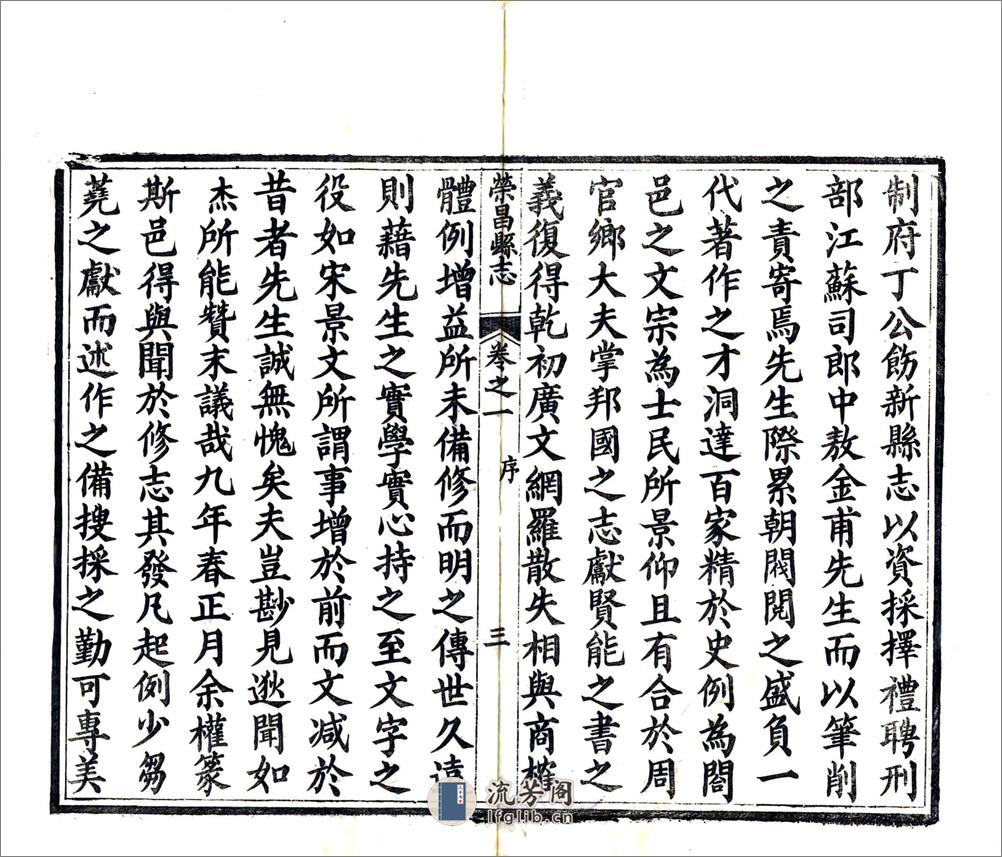 制府丁公飭新縣志以資採擇禮聘刑
部江蘇司郎中敖金甫先生而以筆削
之責寄焉先生際累朝閥閱之盛負一
代著作之才洞達百家精於史例為閤
邑之文宗為士民所景仰且有合於周
官鄉大夫掌邦國之志獻賢能之書之
義復得乾初廣文網羅散失相與商榷
榮昌縣志 卷之一 序 三
體例增益所未備修而明之傳世久遠
則藉先生之實學實心持之至文字之
役如宋景文所謂事增於前而文减於
昔者先生誠無愧矣夫豈尠見逖聞如
杰所能贊末議哉九年春正月余權篆
斯邑得與聞於修志其發凡起例少芻
蕘之獻而述作之備搜採之勤可專美
流芳阁
lfglib.cn